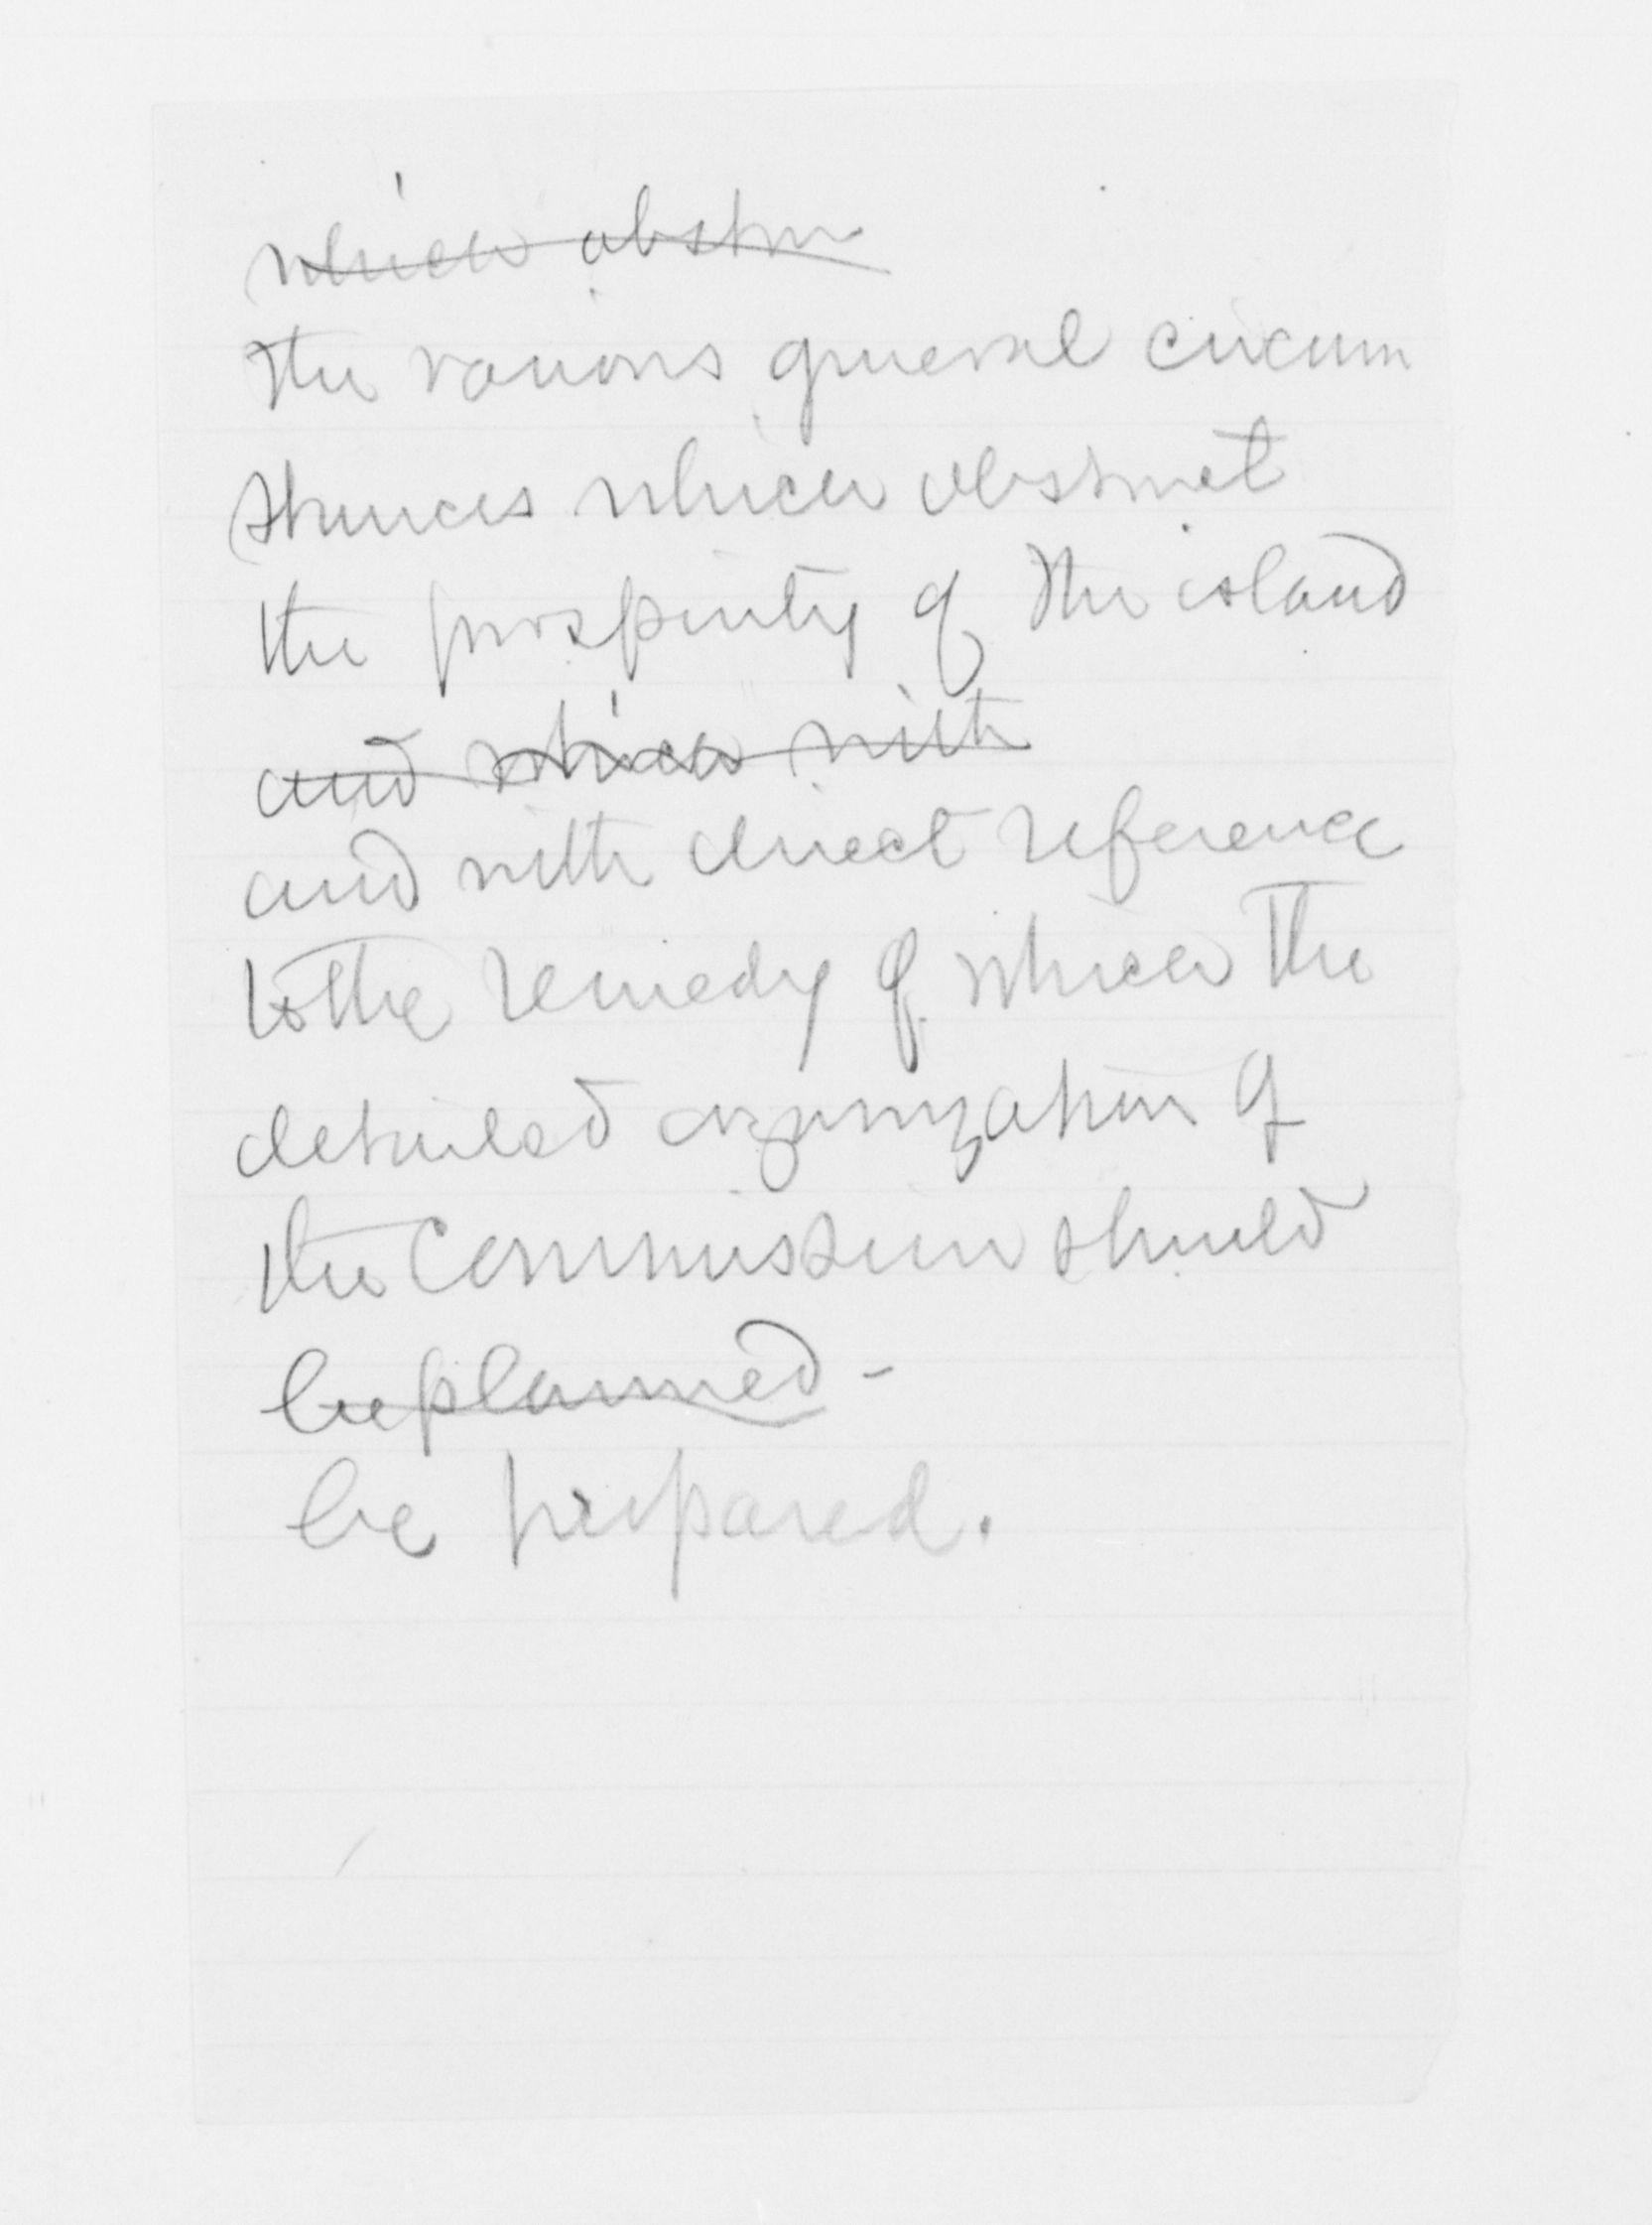 which obstru
the various general circum
stances which obstruct
the prosperity of the island
and which with
and with direct reference
to the remedy of which the
detailed organization of
the Commission should
be planned -
be prepared.